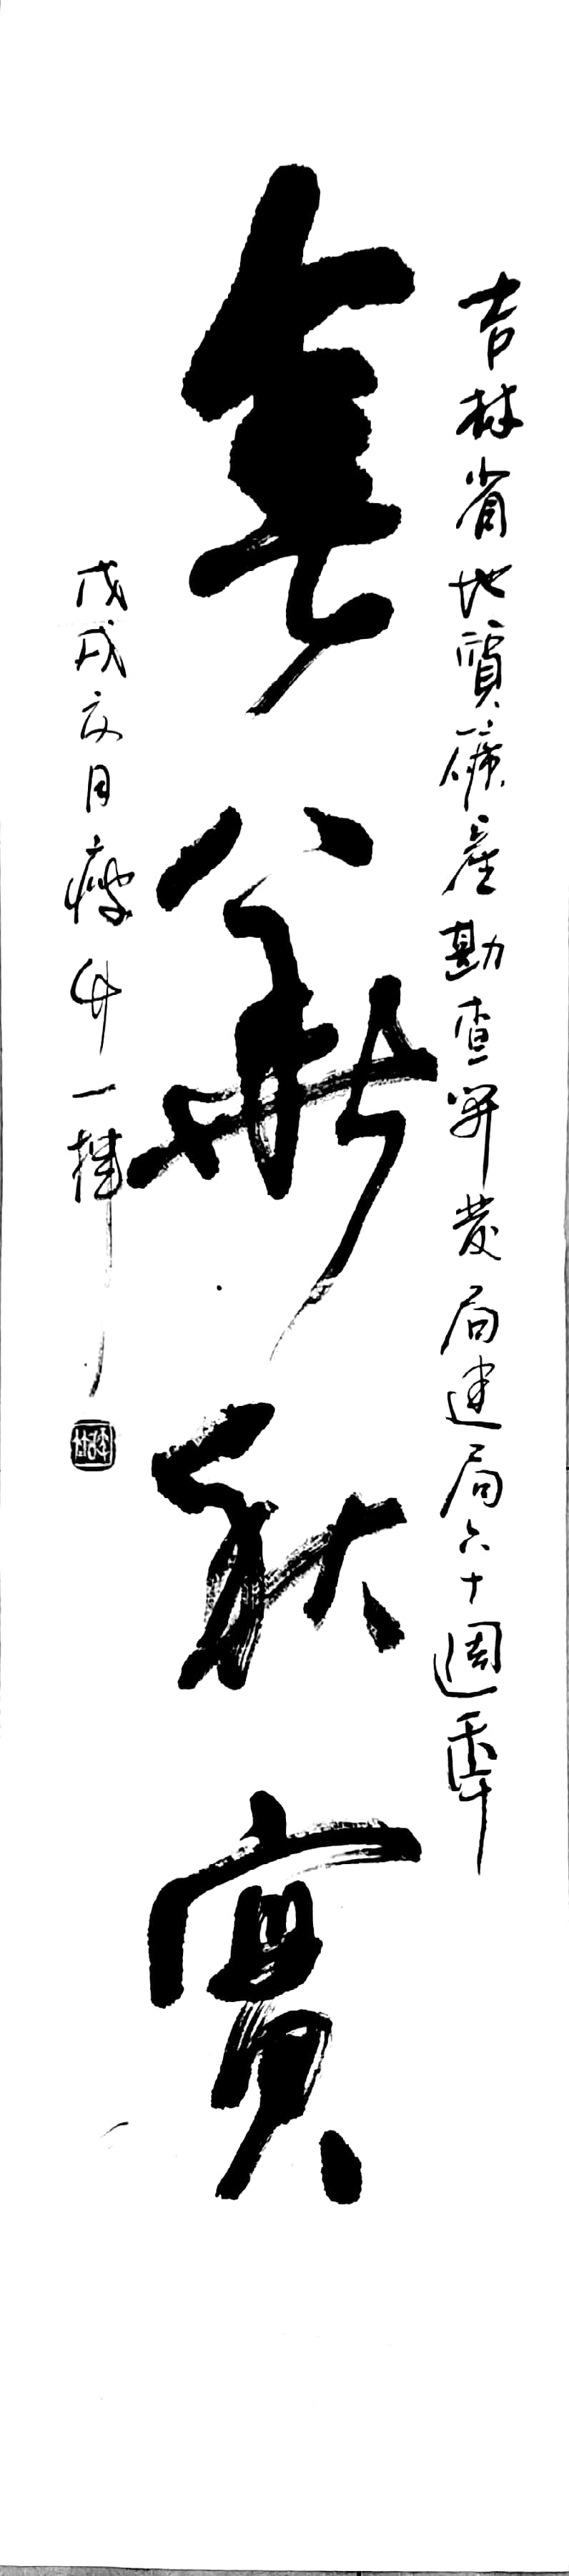 吉林省地質礦產勘查開發局建局六十週年
春華秋實
戊戌六月瘦竹一揮